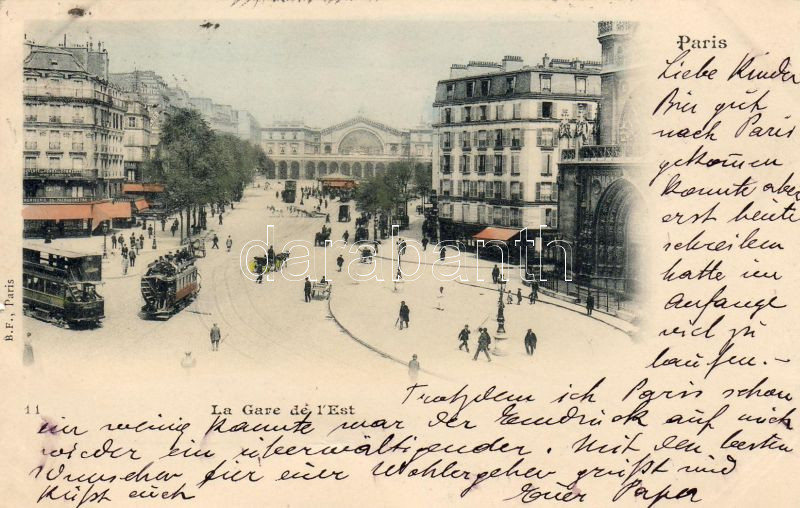 Paris
Liebe Kinder
Bier gut
nach Paris
gekommen
kannte aber
erst heute
schreiben
hatte im
Anfange
viel zu
laufen. -
darabanth
B.F., Paris
11
La Gare de l'Est
Trotzdem ich Paris schon
ein wenig kannte war der Eindruck auf mich
wieder ein überwältigender. Mit den besten
Wünschen für euer Wohlergehen grüßt und
küßt euch Euer Papa